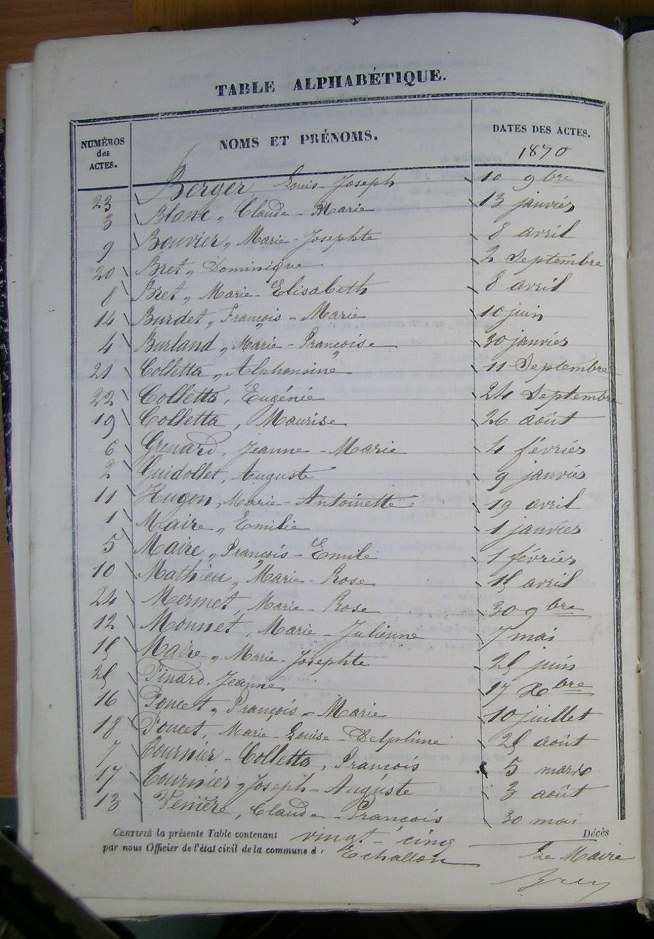 TABLE ALPHABÉTIQUE.
NUMÉROS des ACTES. NOMS ET PRÉNOMS. DATES DES ACTES.
1870
23 Berger Louis-Joseph 10 9bre
3 Blanc, Claude-Marie 13 janvier
9 Bouvier, Marie-Josephte 8 avril
20 Bret, Dominique 2 Septembre
8 Bret, Marie-Elisabeth 8 avril
14 Burdet, François-Marie 10 juin
4 Burland, Marie-Françoise 30 janvier
21 Colletta, Alphonsine 11 Septembre
22 Colletta, Eugénie 24 Septembre
19 Colletta, Maurise 26 août
6 Grenard, Jeanne-Marie 4 février
2 Guidollet, Auguste 9 janvier
11 Hugon, Marie-Antoinette 19 avril
1 Maire, Emilie 1 janvier
5 Maire, François-Emile 1 février
10 Mathieu, Marie-Rose 15 avril
24 Mermet, Marie-Rose 30 9bre
12 Monnet, Marie-Julienne 7 mai
15 Maire, Marie-Josephte 25 juin
25 Pinard, Jeanne 17 Xbre
16 Poncet, François-Marie 10 juillet
18 Poncet, Marie-Louise-Delphine 25 août
7 Tournier-Colletta, François 5 mars
17 Tournier, Joseph-Auguste 3 août
13 Claude-François 30 mai
CERTIFIÉ la présente Table contenant vingt-cinq Décès
par nous Officier de l'état civil de la commune d Echallon Le Maire